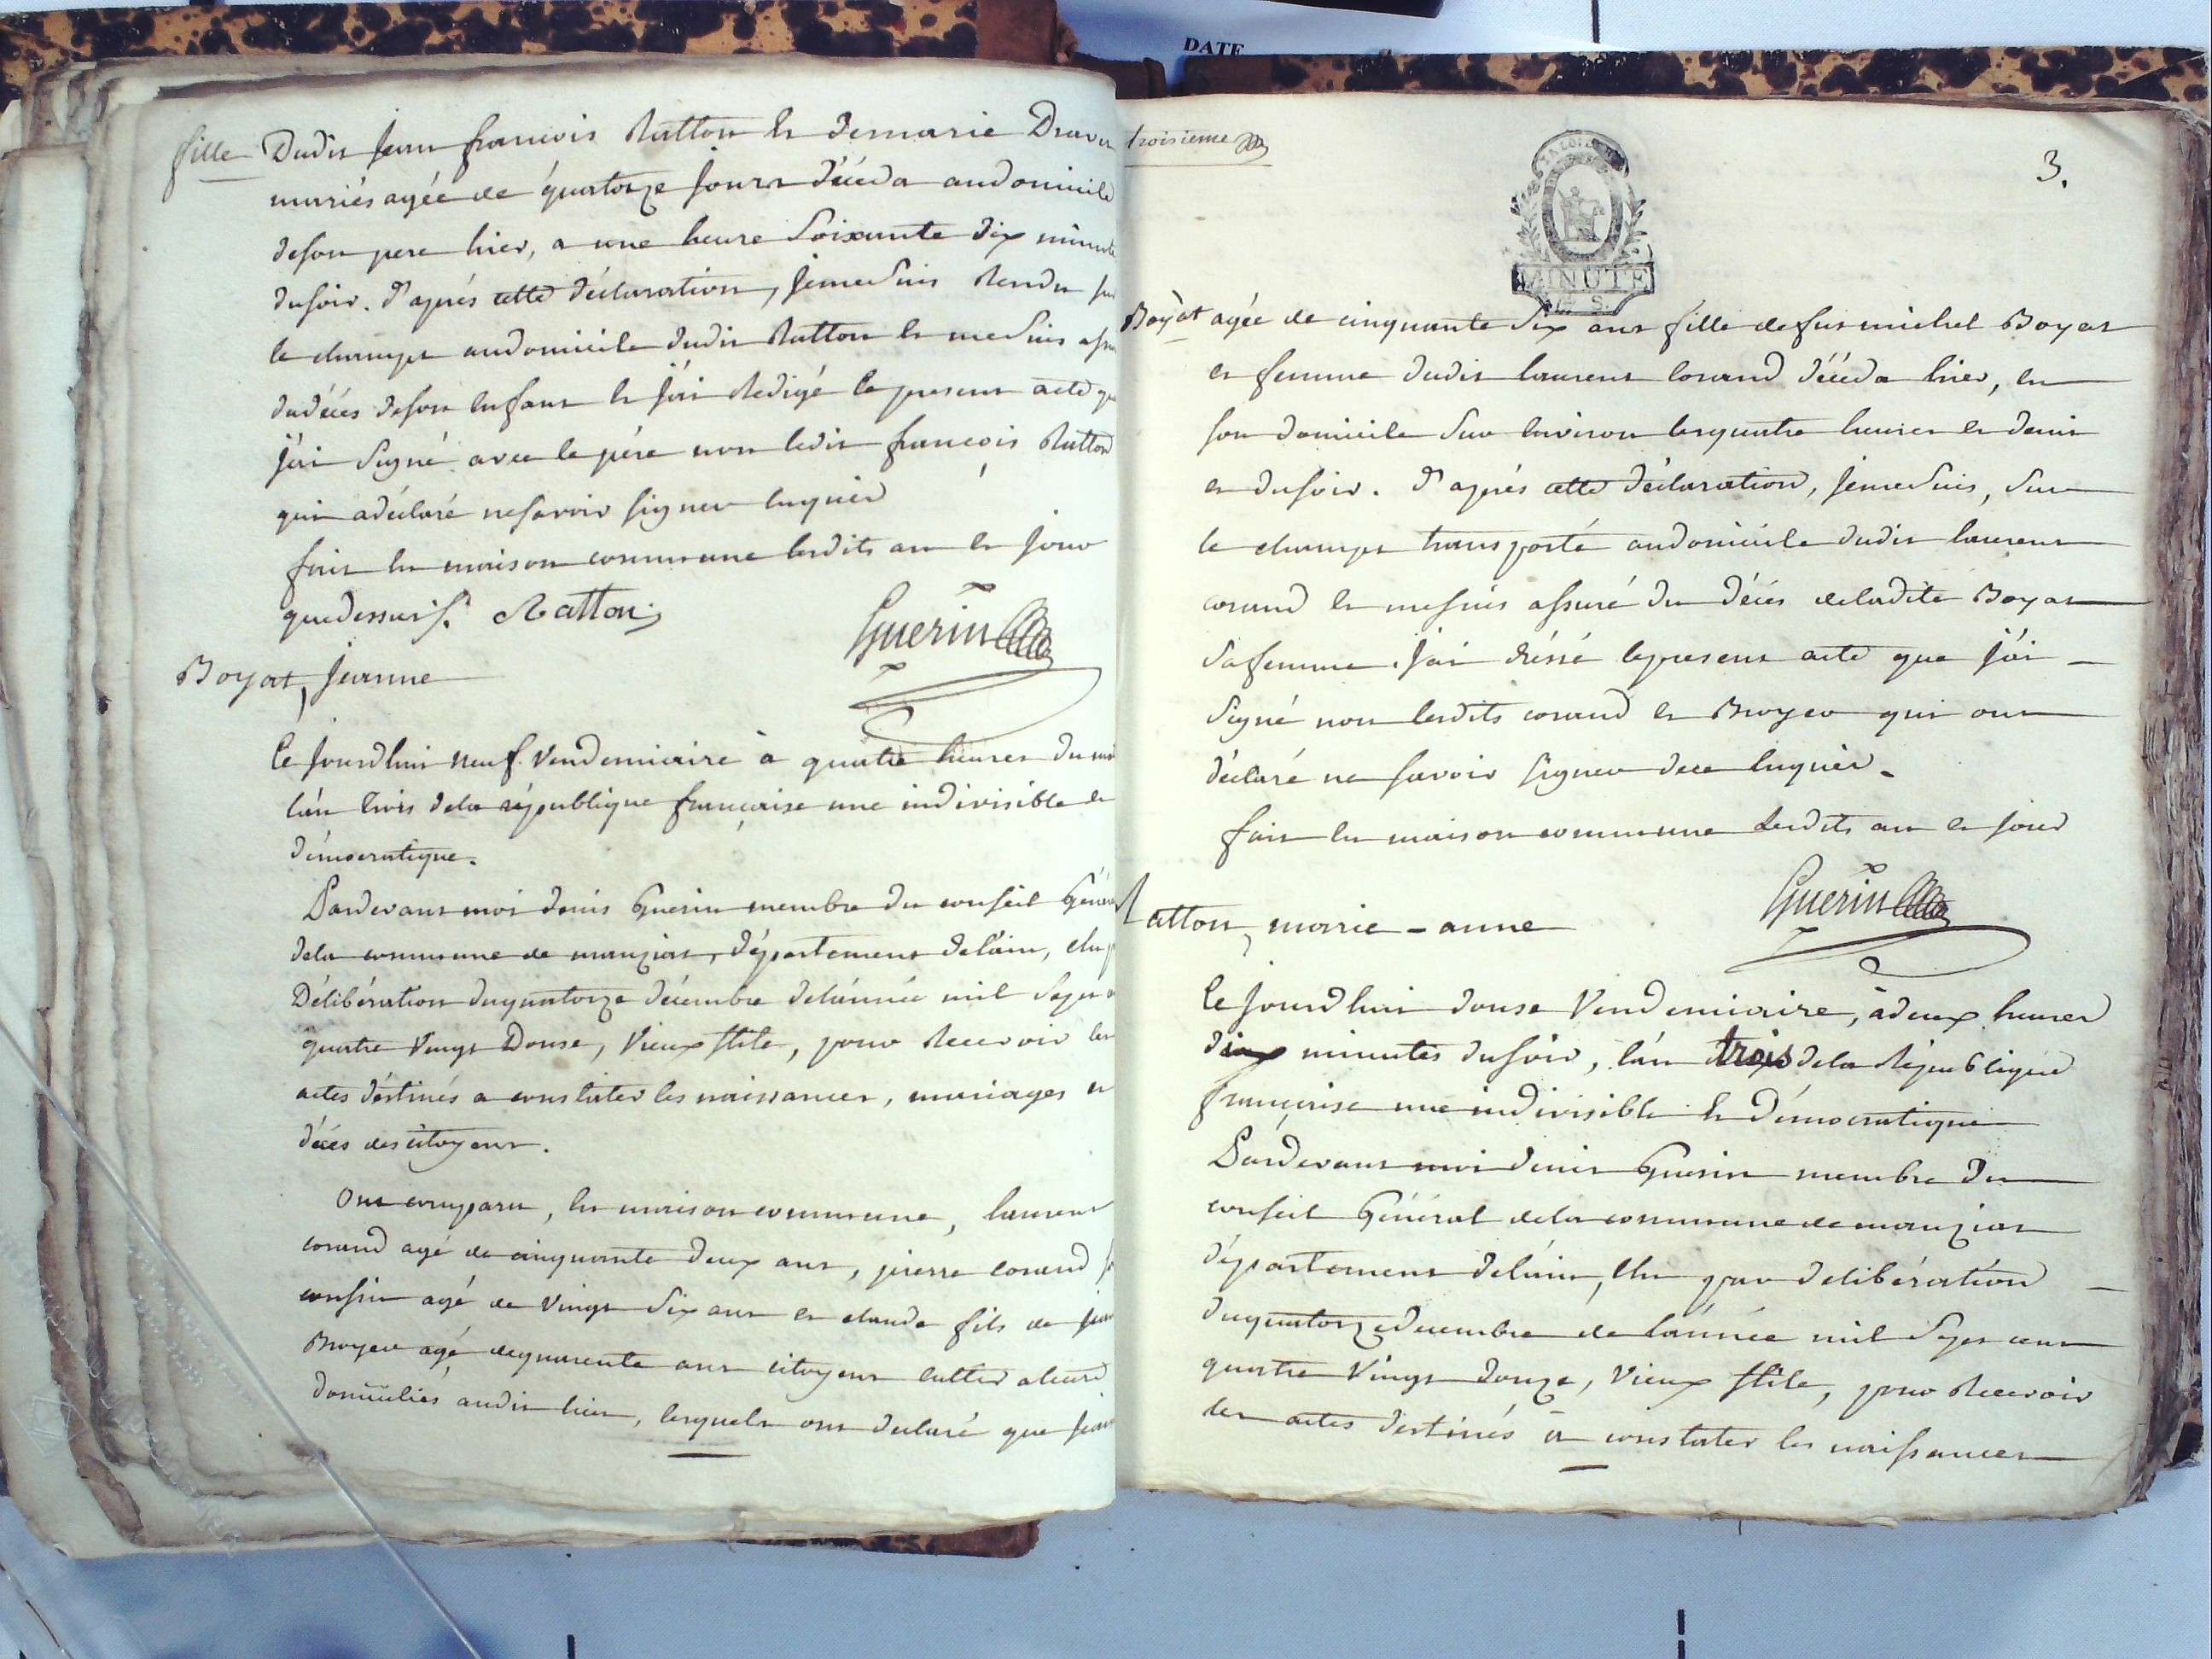 DATE
fille Dudit Jean françois Ratton et de marie
mariés agée de quatorze jours décéda au domicile
de son pere hier, a une heure soixante dix minute
du soir. D'aprés cette déclaration, je me suis rendu
le champt au domicile dudit Ratton et me suis
du décés de son enfant et j'ai redigé le present acte
j'ai signé avec le pére non ledit françois Ratton
qui a déclaré ne savoir signer enquis
fait en maison commune lesdits an et jour
que dessus. Ratton
Guerin
Boyat, Jeanne
Ce jourdhui neuf vendemiaire à quatre heures du
l'an trois de la république française une indivisible et
démocratique.
Pardevant moi denis Guerin membre du conseil Général
de la commune de manziat, département de l'ain, elu
Délibération du quatorze décembre de l'année mil sept
quatre vingt Douse, vieux stile, pour recevoir les
actes déstinés a constater les naissances, mariages et
décés des citoyens.
Ont comparu, en maison commune, laurent
corand agé de cinquante deux ans, pierre corand
cousin agé de vingt six ans et claude fils de
Broyer agé de quarente ans citoyens
domiciliés audit lieu, lesquels ont declaré que
troisieme
3.
MINUTE
Boyat agée de cinquante six ans fille de fut michel Boyat
et femme dudit laurent corand décéda hier, en
son domicile sur l'environ les quatre heures et demie
et du soir. D'aprés cette déclaration, je me suis, sur
le champt transporté au domicile dudit laurent
corand et me suis assuré du décés de ladite Boyat
sa femme. j'ai dréssé le present acte que j'ai
signé non lesdits corand et Broyer qui ont
déclaré ne savoir signer de ce enquis.
fait en maison commune lesdits an et jour
Guerin
Ratton, marie-anne
Ce jourdhui douse Vendemiaire, à deux heures
dix minutes du soir, l'an trois de la République
française une indivisible et démocratique
Pardevant moi denis Guerin membre du
conseil Général de la commune de manziat
département de l'ain, elu par delibération
du quatorze decembre de l'année mil sept cent
quatre vingt douze, vieux stile, pour recevoir
les actes destinés à constater les naissances